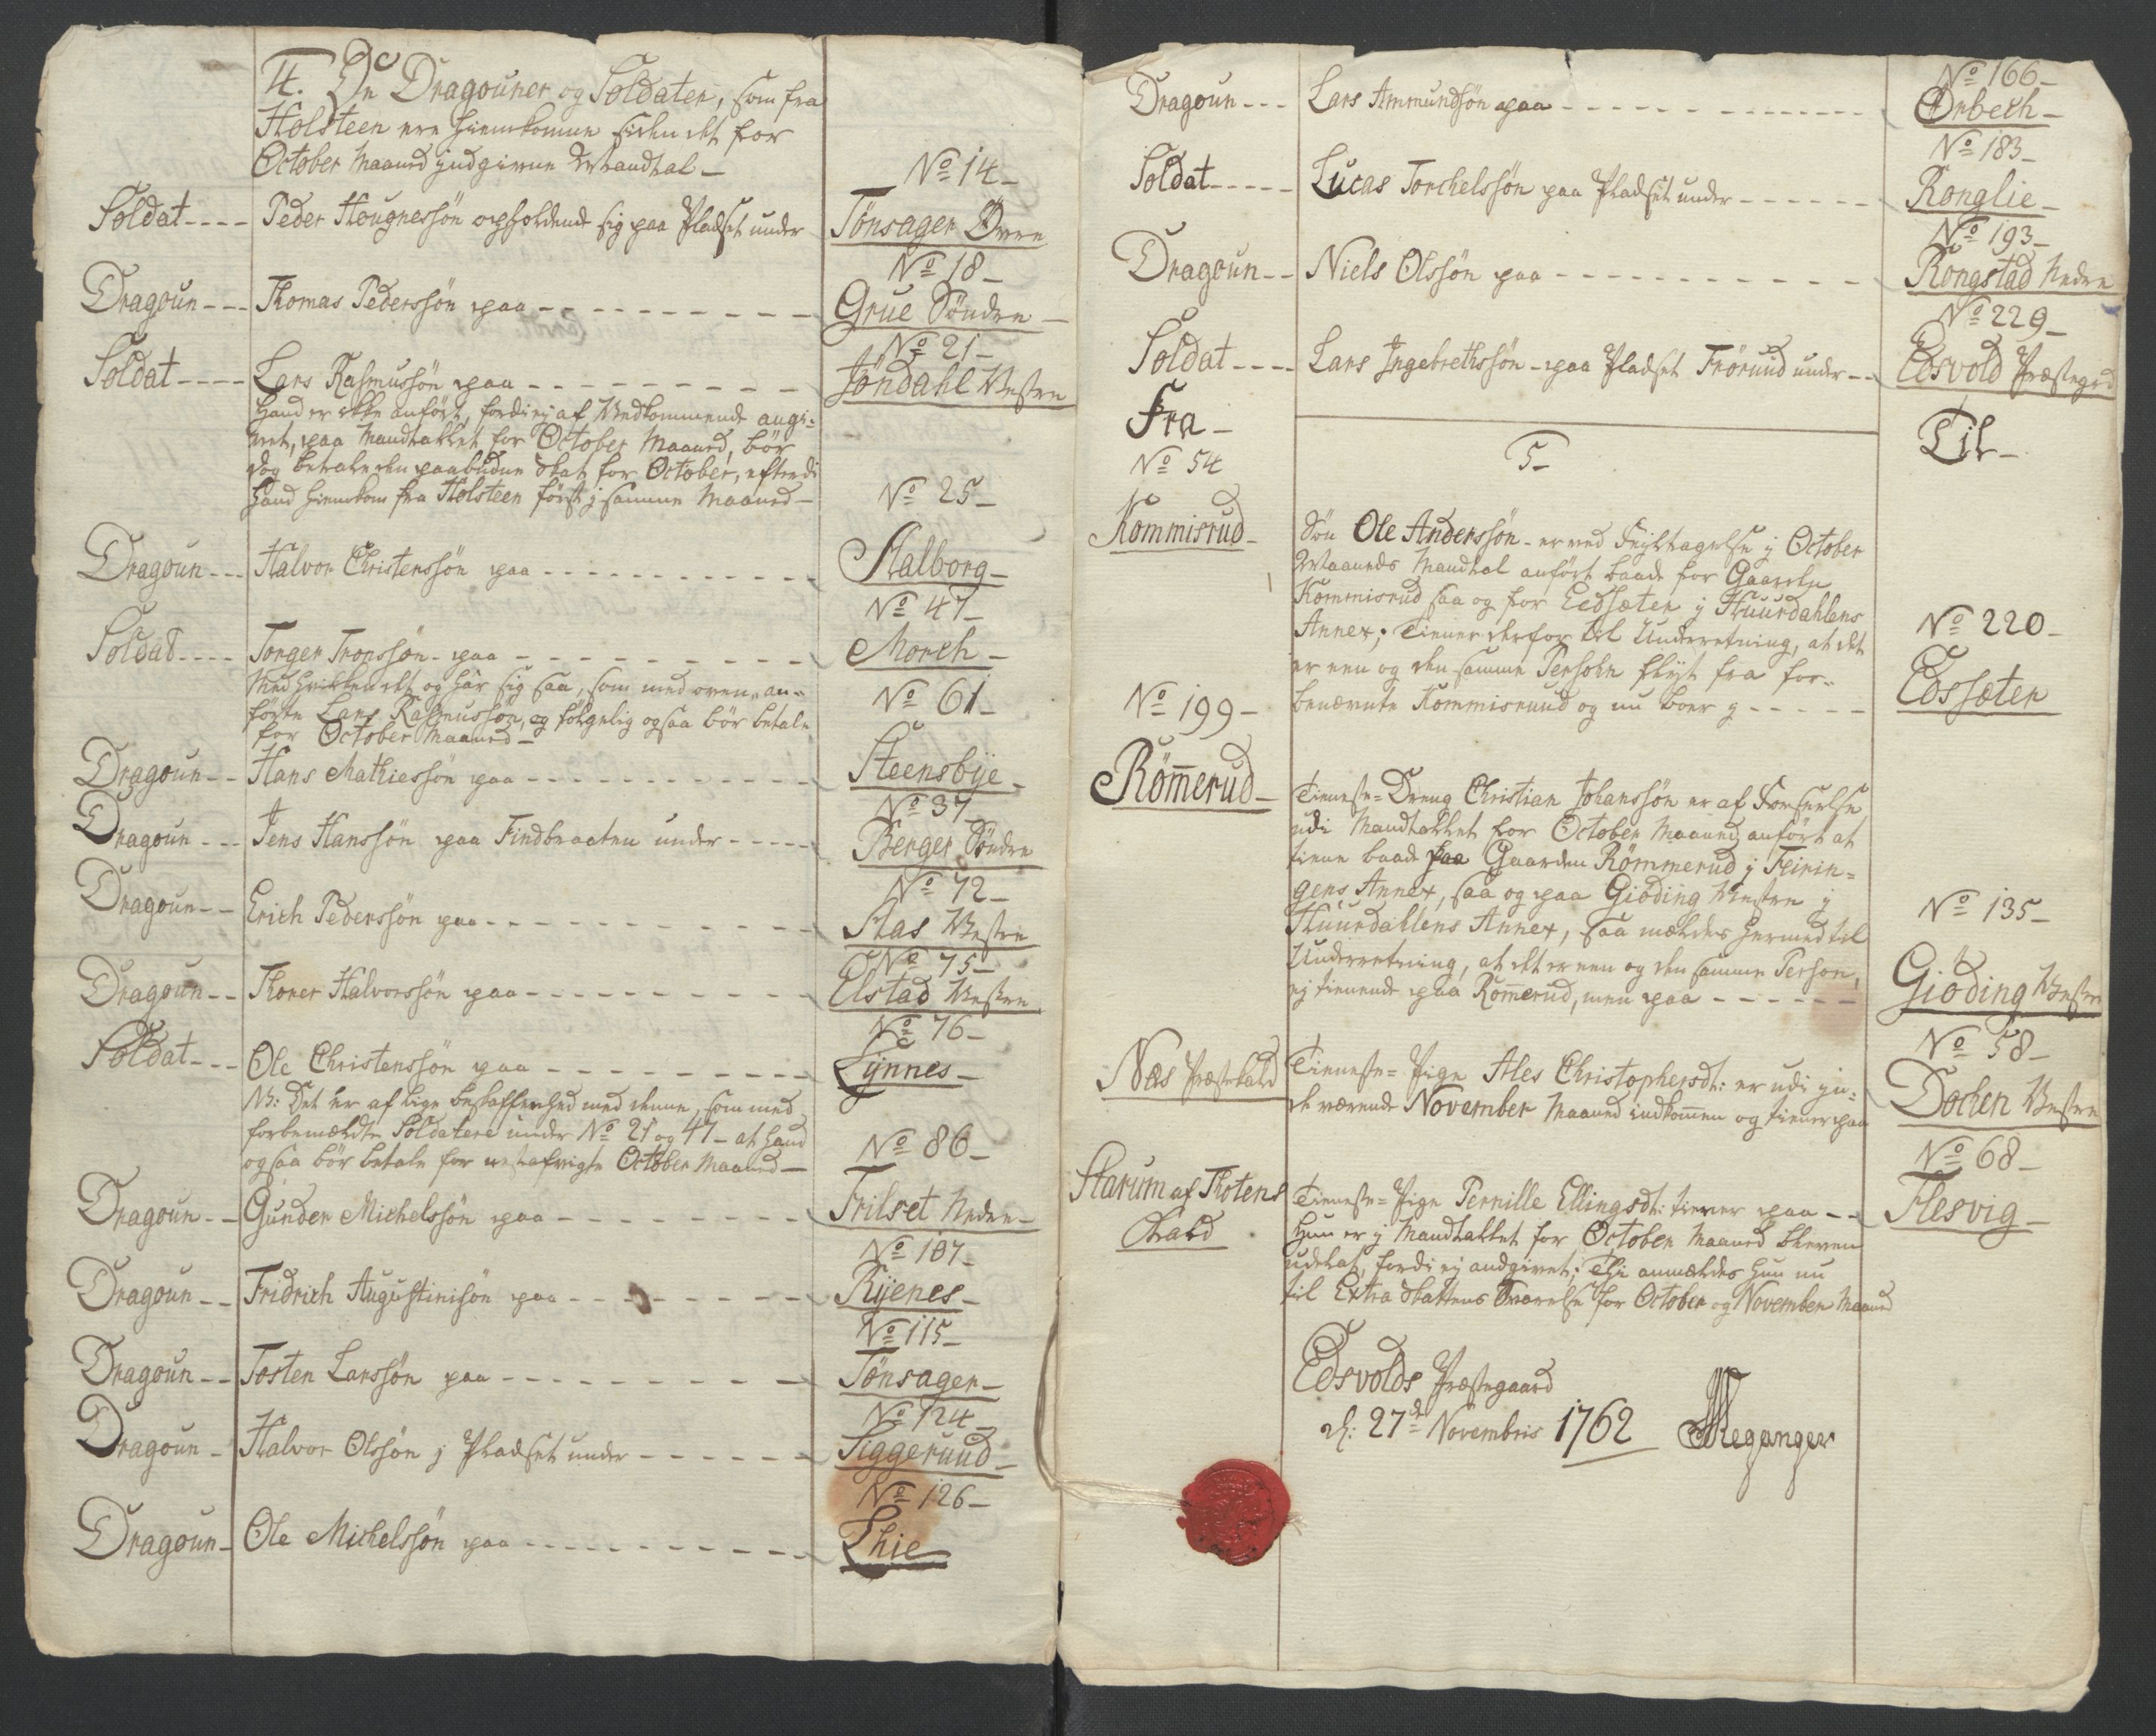 4. De Dragouner og Soldater, som fra
Holsteen ere hiemkomne siden det for
October Maaned indgivne Mandtal -
No 14 -
Soldat ---- Peder Hougnessön opholdende sig paa Pladset under Tönsager Övre
No 18 -
Dragoun --- Thomas Pederssön paa --- Grue Söndre -
No 21 -
Soldat ---- Lars Rasmussön paa --- Jöndahl Vestre
Hand er ikke anfört, fordi ej af Vedkommende angi-
vet, paa Mandtallet for October Maaned, bör
dog betale den paabudne Skat for October, efterdi
Hand hiemkom fra Holsteen först j samme Maaned -
No 25 -
Dragoun --- Halvor Christenssön paa --- Stalborg -
No 47 -
Soldat ---- Torger Tronssön - paa --- Morch -
Med hvilken det og har sig saa, som med oven-an-
förte Lars Rasmussön, og fölgelig ogsaa bör betale
for October Maaned -
No 61 -
Dragoun -- Hans Mathiessön paa --- Steensbye -
No 37
Dragoun --- Jens Hanssön paa Findbraaten under --- Berger Söndre
No 72 -
Dragoun -- Erich Pederssön paa --- Stas Vestre
No 75 -
Dragoun -- Thorer Halvorssön paa --- Elstad Vestre
No 76 -
Soldat --- Ole Christenssön paa --- Lynnes -
NB: Det er af lige beskaffenhed med denne, som med
forbemældte Soldatere under No 21 og 47 - at hand
ogsaa bör betale for nestafvigte October Maaned -
No 86 -
Dragoun -- Gunder Michelssön paa --- Frilset Nedre -
No 107 -
Dragoun -- Fridrich Augustinisön paa --- Ryenes -
No 115 -
Dragoun -- Tosten Larssön paa --- Tönsager -
No 124 -
Dragoun - Halvor Olssön j Pladset under --- Siggeruud -
No 126 -
Dragoun - Ole Michelssön paa --- Thie
No 166 -
Dragoun --- Lars Ammundsön paa --- Ørbech -
No 183 -
Soldat ---- Lucas Torchelssön paa Pladset under --- Ronglie -
No 193 -
Dragoun -- Niels Olssön paa --- Rongstad Nedre
No 229 -
Soldat ---- Lars Ingebrethssön - paa Pladset Frörund under -- Edsvold Præstegrd
Fra -
5 -
Til -
No 54
Kommisrud -
Sön Ole Anderssön - er ved Fejltagelse j October
Maaneds Mandtal anfört baade for Gaarden
Kommisrud saa og for Eedsæter j Huurdahlens
Annex; Tiener derfor til Underretning, at det
er een og den samme Persohn flyt fra for-
benævnte Kommisruud og nu boer j ---
No 220 -
Edssæter
No 199 -
Römerud -
Tieneste-Dreng Christian Johanssön er af Forseelse
udi Mandtallet for October Maaned anfört at
tiene baade paa Gaarden Römmerud j Feirin-
gens Annex, saa og paa Giöding Vestre j
Huurdahlens Annex, saa mældes hermed til
Underretning, at det er een og den samme Person,
ej tienende paa Römerud, men paa ---
No 135 -
Giöding Vestre
No 58 -
Næs Præstekald
Tieneste-Pige Ales Christophersdt: er udi in-
deværende November Maaned indkommen og tiener paa
Dochen Vestre
No 68 -
Starum af Thotens
Kald
Tieneste-Pige Pernille Ellingsdt: tiener paa --
Hun er j Mandtallet for October Maaned bleven
udelat, fordi ej andgivet; Thi anmældes hun nu
til Extra Skattens Svarelse for October og November Maaned
Flesvig -
Edsvolds Præstegaard
d: 27de Novembris 1762